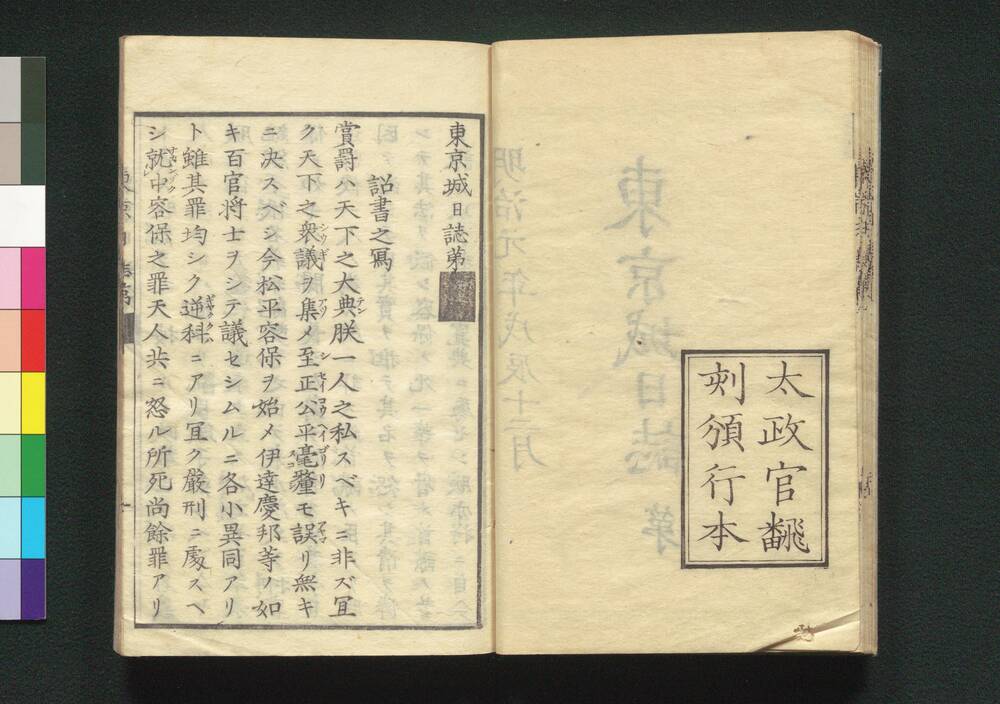 太政官飜
刻頒行本
東京城日誌第
詔書之寫
賞爵ハ天下之大典朕一人之私スベキニ非ズ冝
ク天下之衆議ヲ集メ至正公平毫釐モ誤リ無キ
ニ決スベシ今松平容保ヲ始メ伊達慶邦等ノ如
キ百官将士ヲシテ議セシムルニ各小異同アリ
ト雖其罪均シク逆科ニアリ冝ク嚴刑ニ處スベ
シ就中容保之罪天人共ニ怒ル所死尚餘罪アリ